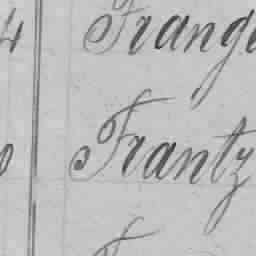 4 Frang
Frantz